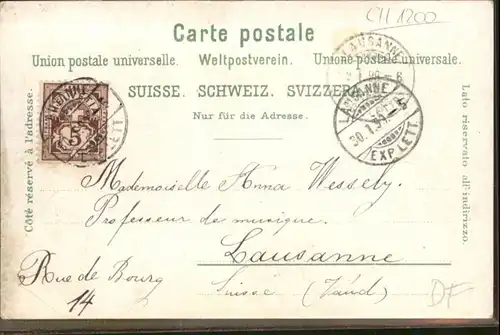 CH 1200
Carte postale
Union postale universelle. Weltpostverein. Unione postale universale.
SUISSE. SCHWEIZ. SVIZZERA.
Nur für die Adresse.
Côté réservé à l'adresse.
Lato riservato all' indirizzo.
5
LAUSANNE
LAUSANNE
EXP. LETT.
Mademoiselle Anna Wessely.
Professeur de musique.
Lausanne
Rue de Bourg
14
Suisse (Vaud)
DF